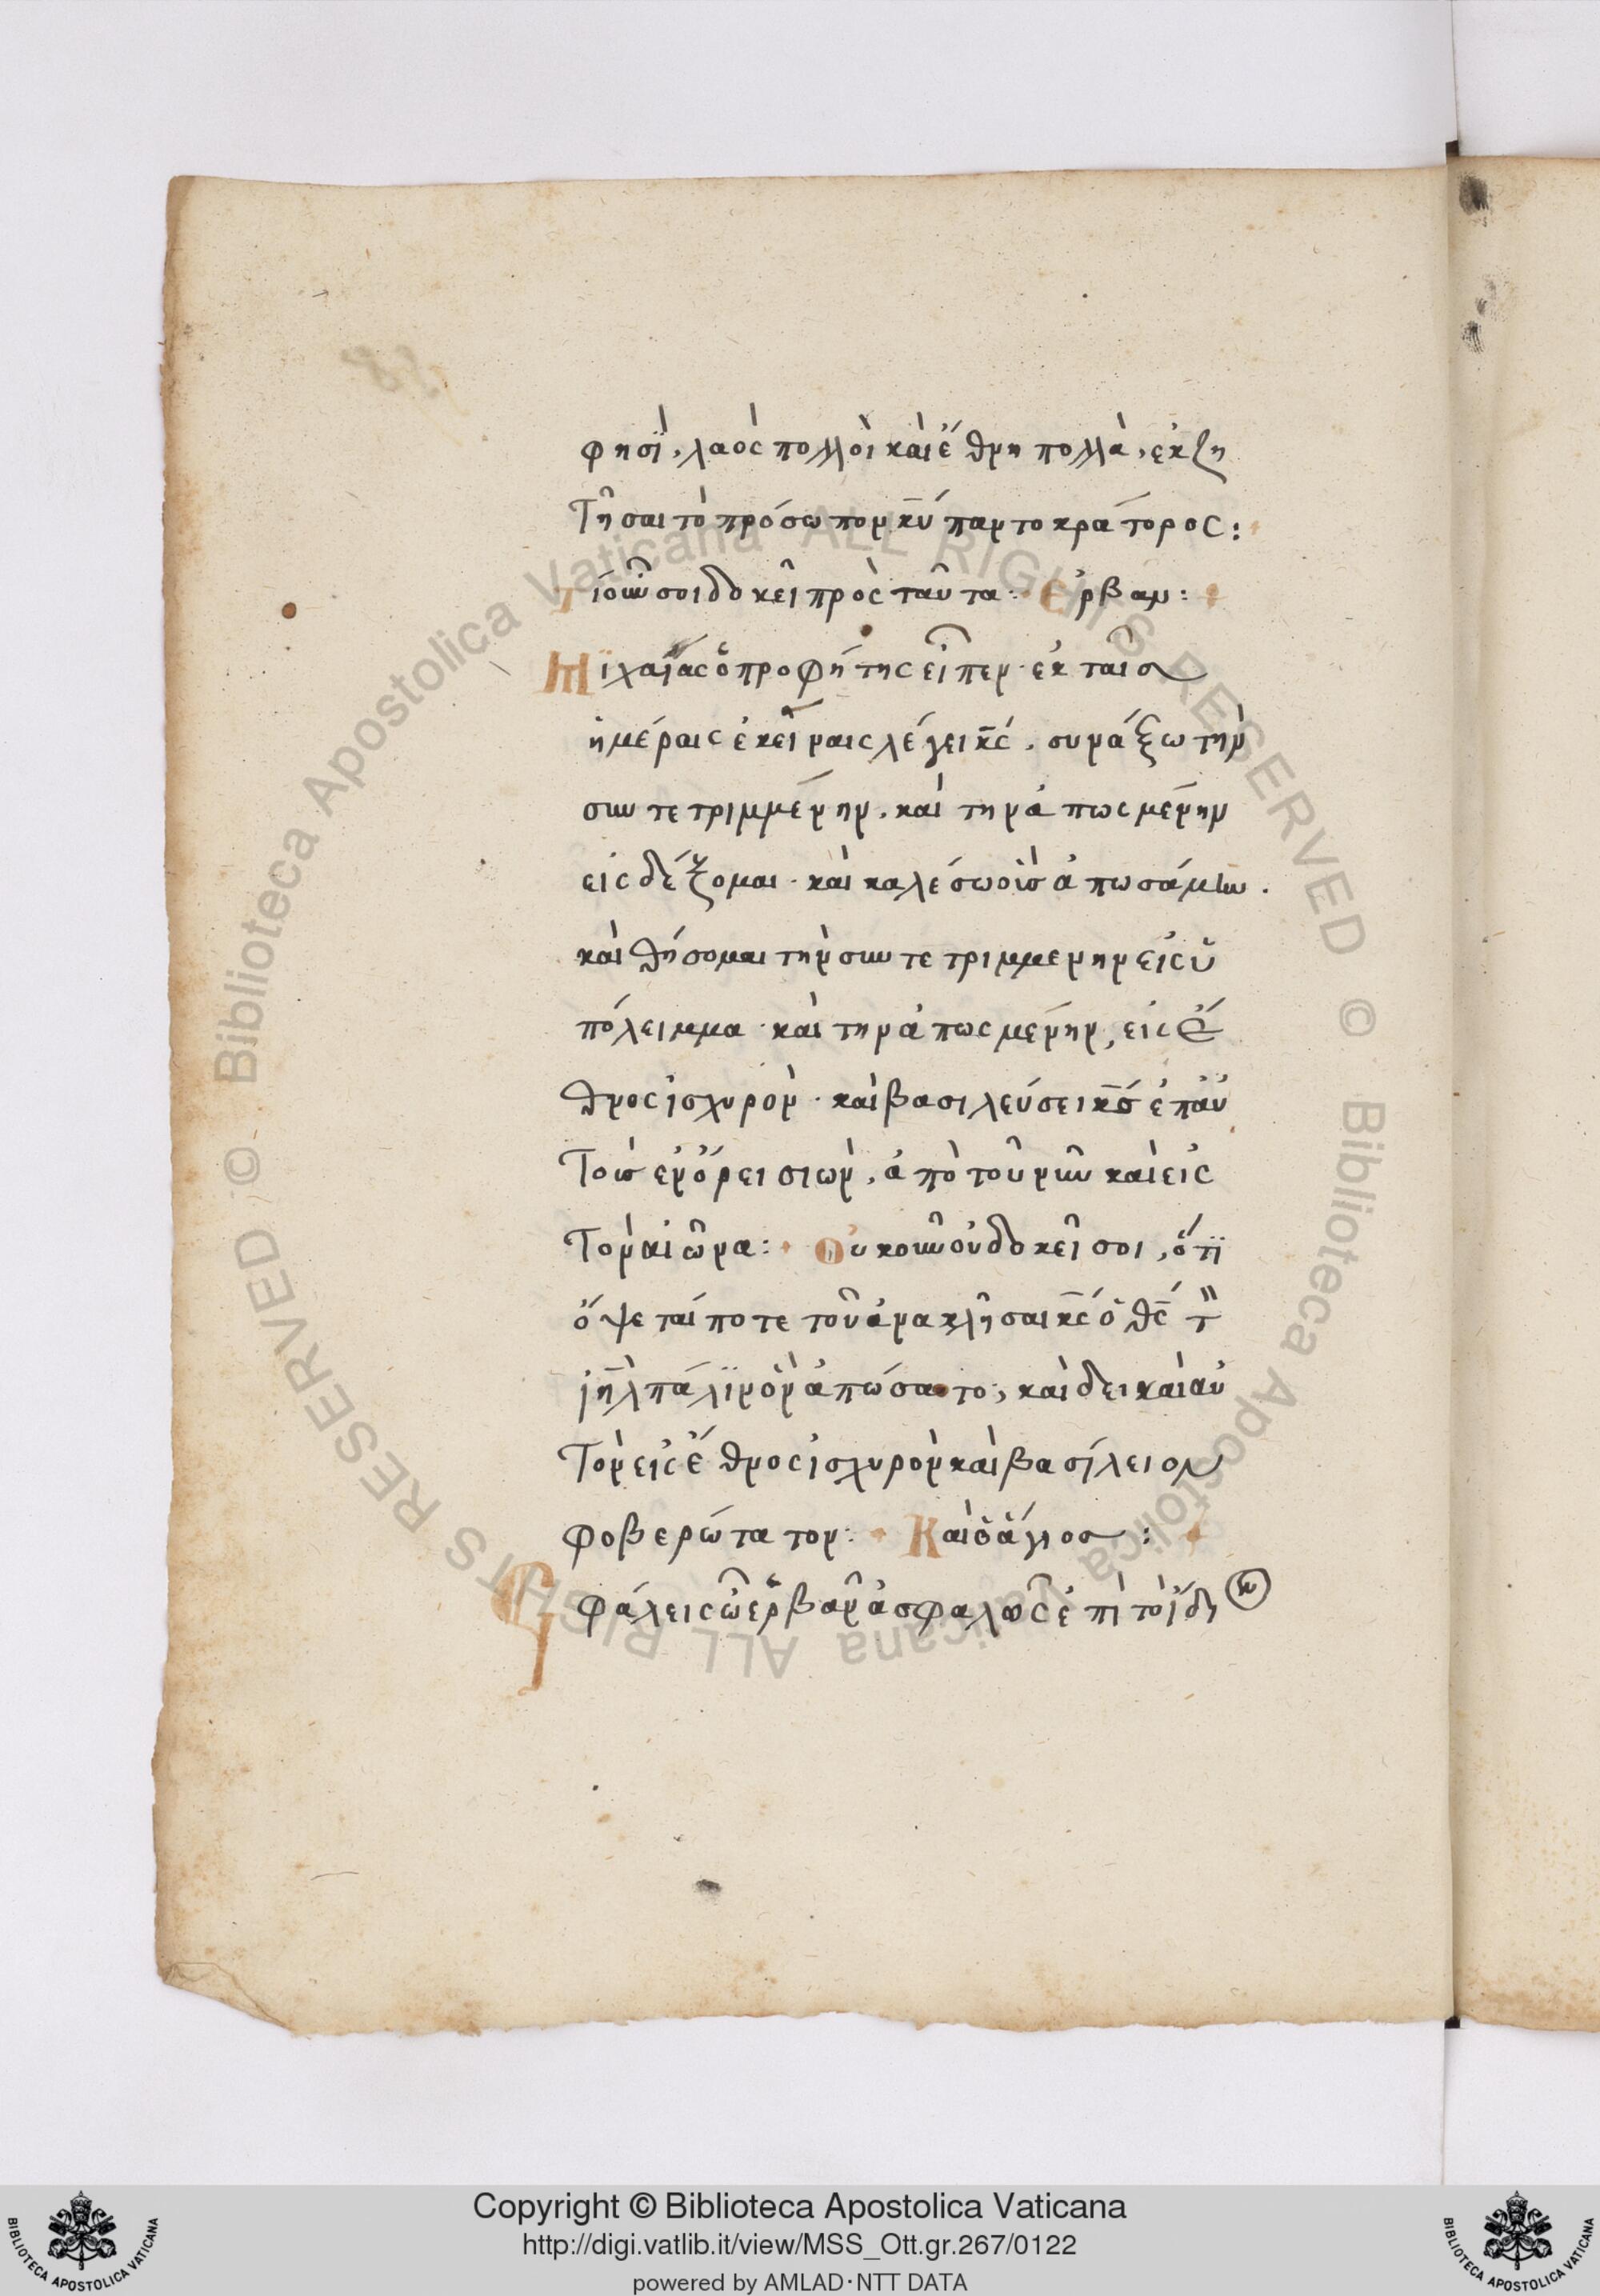 φησὶ, λαὸς πολλοὶ καὶ ἔθνη πολλὰ, ἐκζη
τῆσαι τὸ πρόσωπον κ̅υ̅ παντοκράτορος:
Τί οὖν σοι δοκεῖ πρὸς ταῦτα: Ἑρβαν:
Μιχαίας ὁ προφήτης εἶπεν· ἐκ ταῖσ
ἡμέραις ἐκείναις λέγει κ̅ς̅, συνάξω τὴν
συντετριμμένην, καὶ την ἀπωσμένην
εἰσδέξομαι· καὶ καλέσω οὓσ ἀπωσάμην.
καὶ θήσομαι τὴν συντετριμμενην εἰς ὑ
πόλειμμα· καὶ την ἀπωσμένην, εἰς ἔ
θνος ἰσχυρὸν· καὶ βασιλεύσει κ̅ς̅ ἐπ' αὐ
τοὺσ ἐν ὄρει σιὼν, ἀπὸ τοῦ νῦν καὶ εἰς
τὸν αἰῶνα: Οὐκοῦν οὐ δοκεῖ σοι, ὅτι
ὄψεταί ποτε τοῦ ἀνακλῆσαι κ̅ς̅ ὁ θ̅ς̅ τὸν
ι̅η̅λ̅ πάλιν ὃν ἀπώσατο, καὶ δει καὶ αὐ
τὸν εἰς ἔθνος ἰσχυρὸν καὶ βασίλειον
φοβερώτατον: Καὶ ὁ ἅγιοσ:
Σφάλεις ὦ ἑρβὰν ἀσφαλῶς ἐπὶ τὸ ἴδιον
Copyright © Biblioteca Apostolica Vaticana
http://digi.vatlib.it/view/MSS_Ott.gr.267/0122
powered by AMLAD·NTT DATA
BIBLIOTECA APOSTOLICA VATICANA
BIBLIOTECA APOSTOLICA VATICANA
© Biblioteca Apostolica Vaticana ALL RIGHTS RESERVED
© Biblioteca Apostolica Vaticana ALL RIGHTS RESERVED